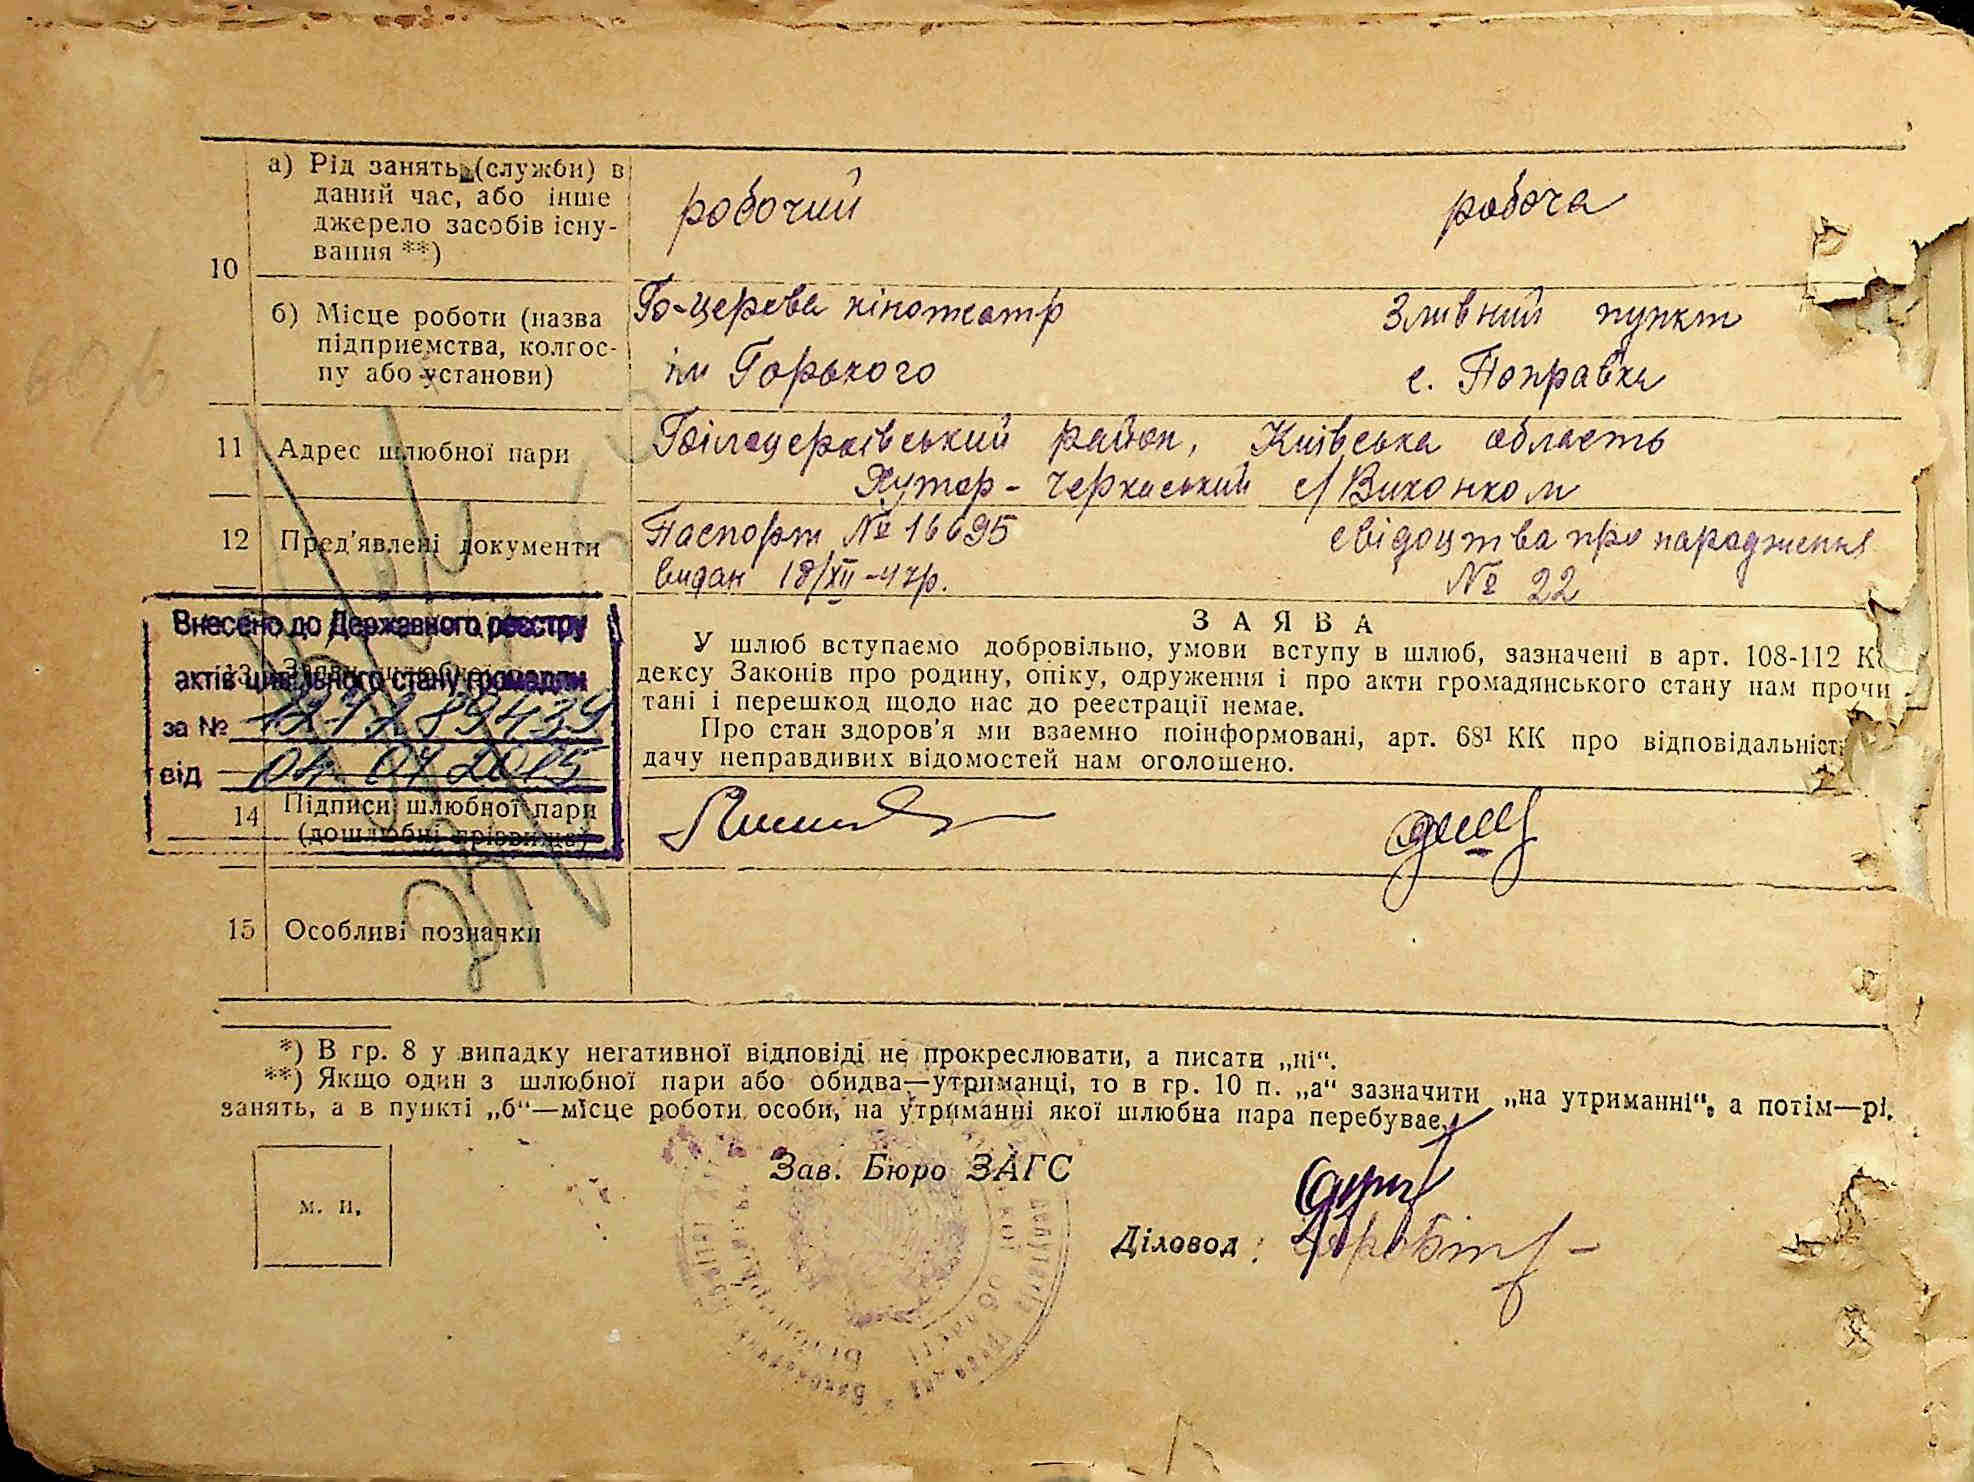 10
а) Рід занять (служби) в
даний час, або інше
джерело засобів існу-
вання **)
робочий
робоча
б) Місце роботи (назва
підприємства, колгос-
пу або установи)
Б-церква кінотеатр
ім Горького
Зливний пункт
с. Поправка
11 Адрес шлюбної пари
Білоцерківський район, Київська область
Хутор-Черкаський с/Виконком
12 Пред'явлені документи
Паспорт № 16695
видан 18/XII-47р.
свідоцтва про народження
№ 22
Внесено до Державного реєстру
актів цивільного стану громадян
за №
від 04 07 2015
13
ЗАЯВА
У шлюб вступаємо добровільно, умови вступу в шлюб, зазначені в арт. 108-112 К
дексу Законів про родину, опіку, одруження і про акти громадянського стану нам прочи
тані і перешкод щодо нас до реєстрації немає.
Про стан здоров'я ми взаємно поінформовані, арт. 68¹ КК про відповідальніст
дачу неправдивих відомостей нам оголошено.
14 Підписи шлюбної пари
(дошлюбні прізвища)
15 Особливі позначки
*) В гр. 8 у випадку негативної відповіді не прокреслювати, а писати „ні“.
**) Якщо один з шлюбної пари або обидва—утриманці, то в гр. 10 п. „а“ зазначити „на утриманні“, а потім—рі
занять, а в пункті „б“—місце роботи особи, на утриманні якої шлюбна пара перебуває.
м. п.
Зав. Бюро ЗАГС
Діловод